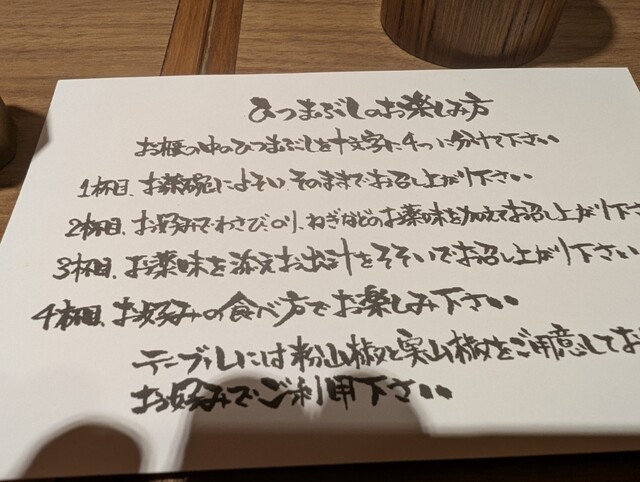 ひつまぶしのお楽しみ方
お櫃の中のひつまぶしを十文字に4つに分けて下さい
1杯目、お茶碗によそい、そのままでお召し上がり下さい
2杯目、お好みでわさび、のり、ねぎなどのお薬味を加えてお召し上がり下さ
3杯目、お薬味を添えお出汁をそそいでお召し上がり下さい
4杯目、お好みの食べ方でお楽しみ下さい
テーブルには粉山椒と実山椒をご用意してお
お好みでご利用下さい